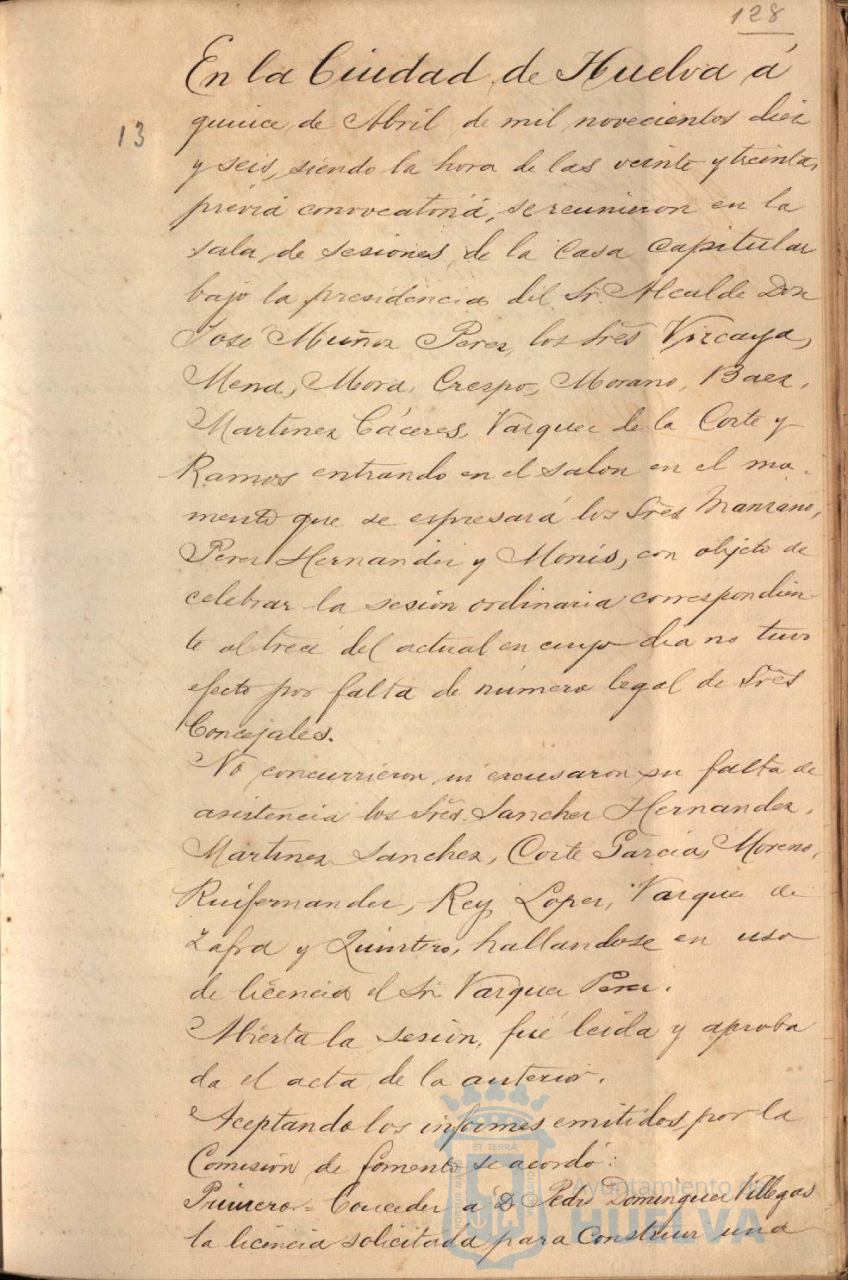 128
En la Ciudad de Huelva á
13
quince de Abril de mil novecientos diez
y seis, siendo la hora de las veinte y treinta,
prévia convocatoria, se reunieron en la
sala de sesiones de la Casa Capitular
bajo la presidencia del Sr. Alcalde Don
José Muñoz Perez, los Srēs Vizcaya,
Mena, Mora, Crespo, Morano, Baez,
Martinez Cáceres, Vazquez de la Corte y
Ramos entrando en el salon en el mo-
mento que se espresará los Srēs Manzano,
Perez Hernandez y Monís, con objeto de
celebrar la sesión ordinaria correspondien-
te al trece del actual en cuyo dia no tuvo
efecto por falta de número legal de Srēs
Concejales.
No concurrieron ni excusaron su falta de
asistencia los Srēs Sanchez Hernandez,
Martinez Sanchez, Corte Garcia, Moreno,
Ruifernandez, Rey Lopez, Vazquez de
Zafra y Quintero, hallandose en uso
de licencia el Sr. Vazquez Perez.
Abierta la sesión, fué leida y aproba
da el acta de la anterior.
Aceptando los informes emitidos por la
Comisión de fomento se acordó:
Primero = Conceder a D. Pedro Dominguez Villegas
la licencia solicitada para construir una
Ayuntamiento de
HUELVA